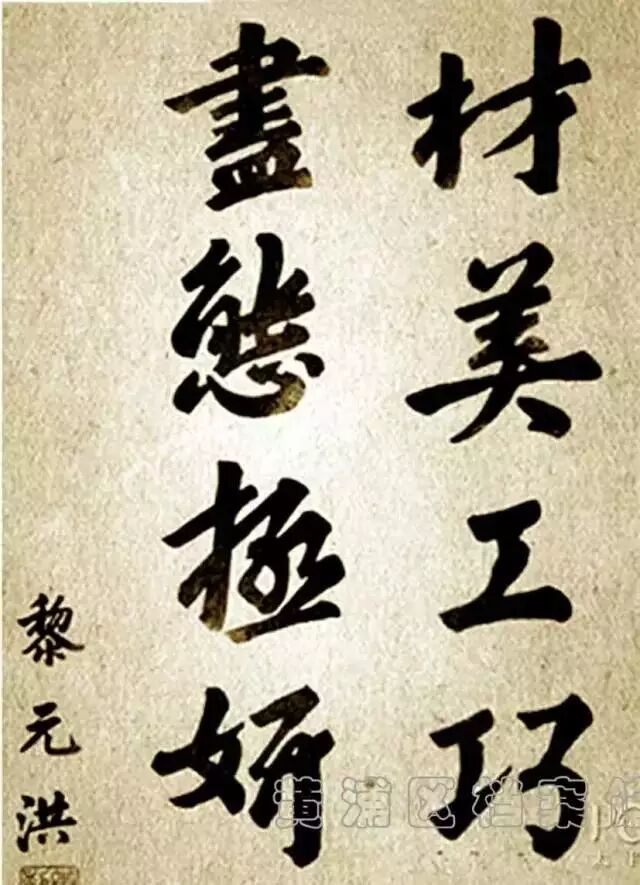 材美工巧
盡態極妍
黎元洪
黄浦区档案